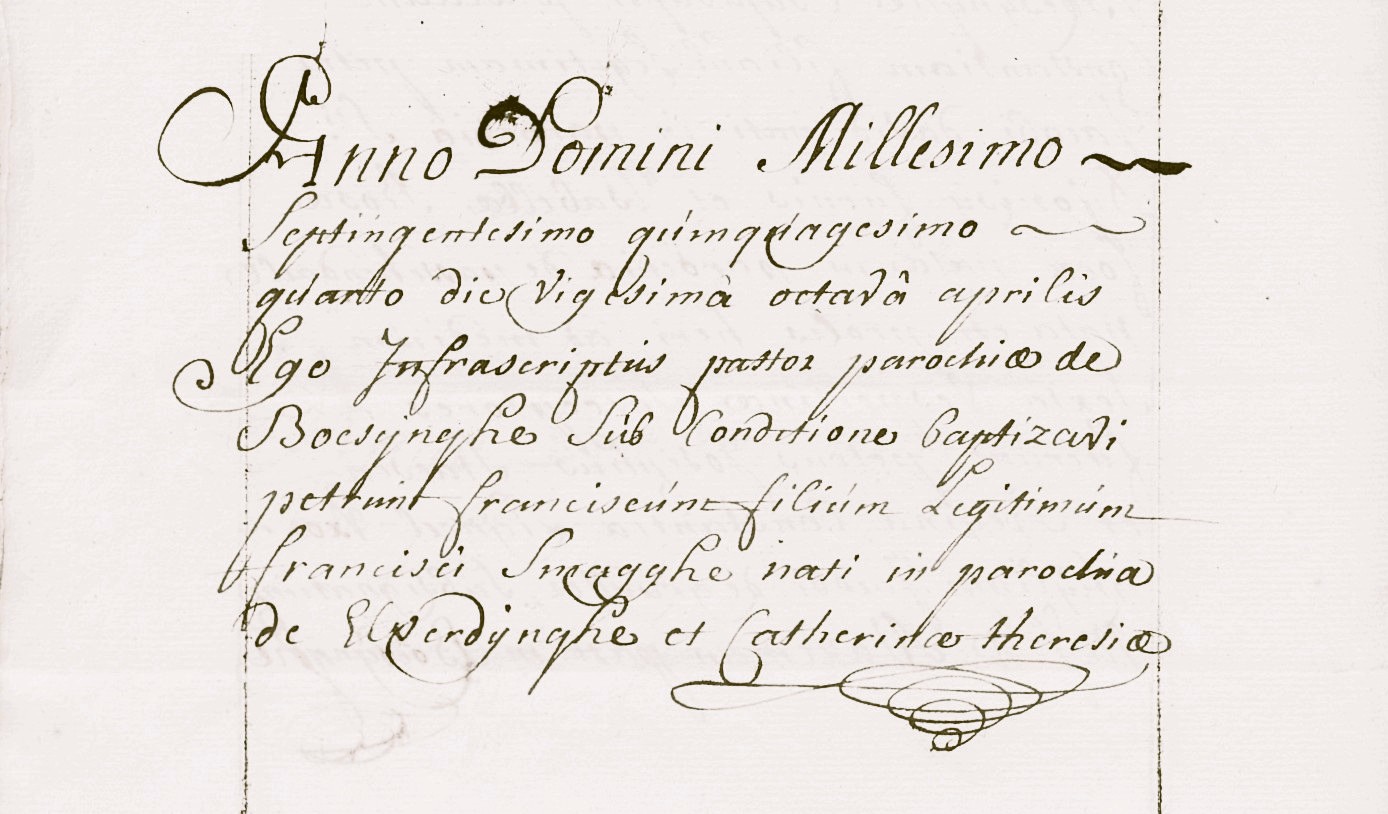 Anno Domini Millesimo
Septingentesimo quinquagesimo
quarto die vigesimâ octavâ aprilis
Ego Infrascriptus pastor parochiæ de
Boesÿnghe Sub Conditione baptizavi
petrum franciscum filium Legitimum
francisci Smagghe nati in parochia
de Elverdÿnghe et Catherinæ theresiæ